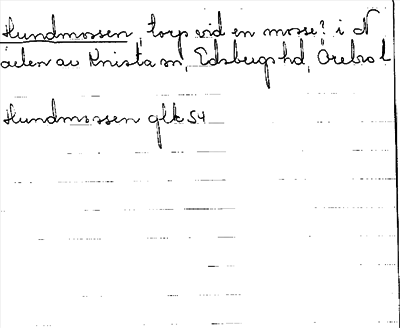 Hundmossen, torp vid en mosse? i N
delen av Knista sn, Edsbergs hd, Örebro l
Hundmossen glk 54